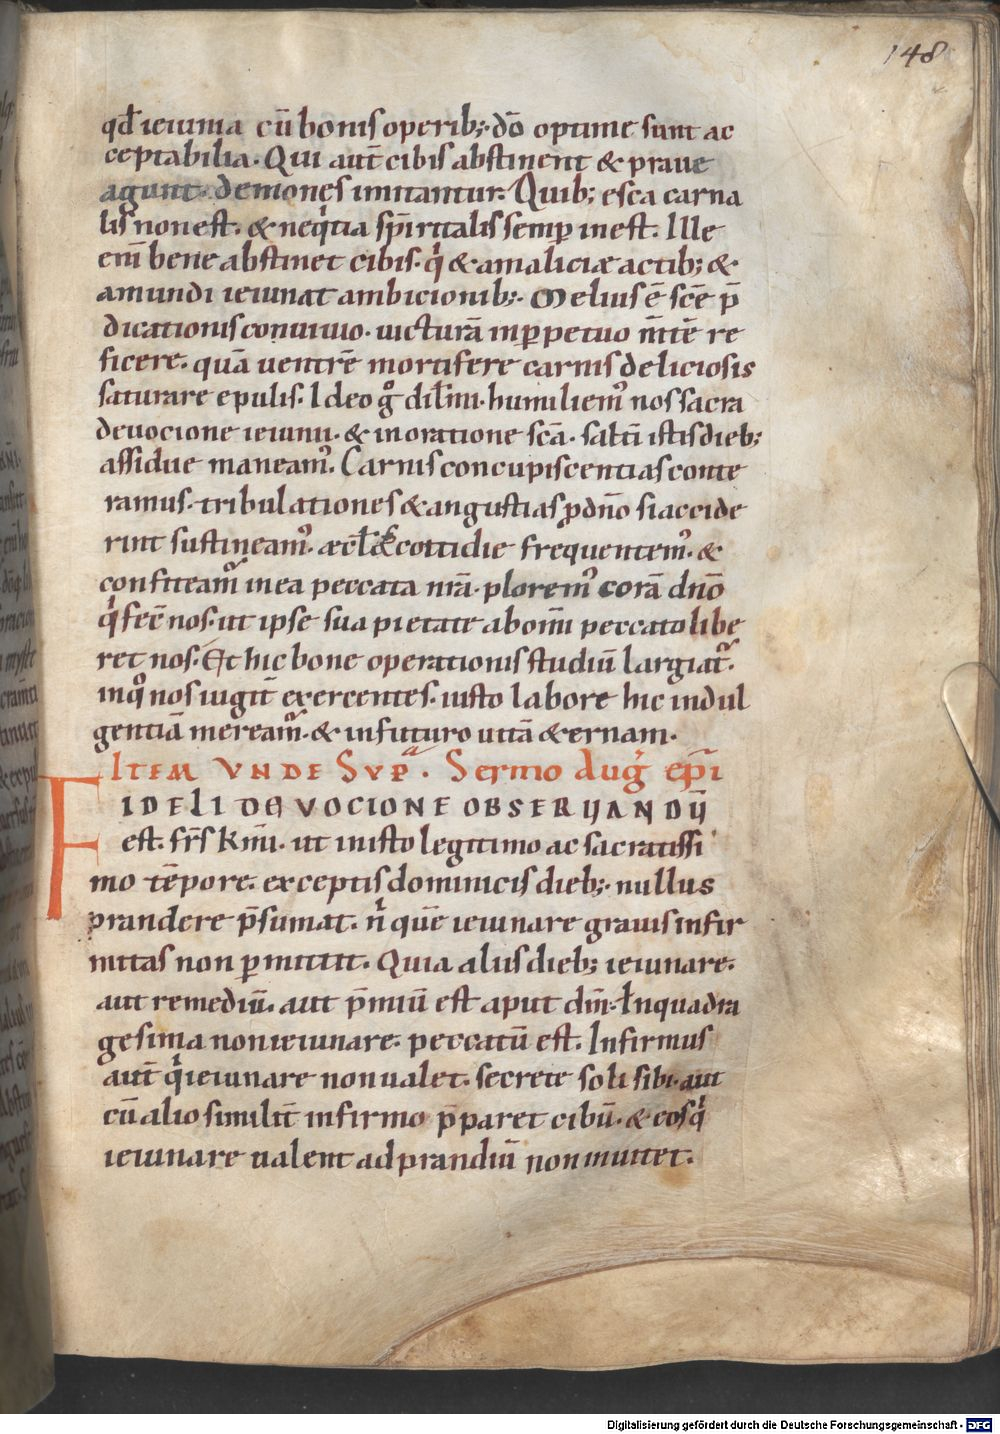 148
qd̄ ieiunia cū bonis operib; dō optime sunt ac
ceptabilia. Qui aut̄ cibis abstinent & praue
agunt. demones imitantur. Quib; esca carna
lis non est. & neqͥtia sp̄iritalis semp̄ inest. Ille
eni̅ bene abstinet cibis. qͥ & a maliciæ actib; &
a mundi ieiunat ambicionib;. Melius ē scē p̄
dicationis conuiuio. uicturā inp̄petuo m̄tē re
ficere. quā uentrē mortifere carnis deliciosis
saturare epulis. Ideo gͦ dil̄mi. humiliemꝰ nos sacra
deuocione ieiunii. & in oratione scā. saltī istis dieb;
assidue maneamꝰ. Carnis concupiscentias conte
ramus. tribulationes & angustias ꝓ dn̄o si accide
rint sustineamꝰ. æccl̄ cottidie frequentemꝰ. &
confiteamꝰ in ea peccata nr̄a. ploremꝰ corā dn̄o
qͥ fec̄ nos. ut ipse sua pietate ab om̄i peccato libe
ret nos. Et hic bone operationis studiū largiat᷑.
in qͦ nos iugit̄ exercentes. iusto labore hic indul
gentiā meream᷑. & in futuro uitā & ernam.
ITEM VNDE SVPᵃ. Sermo Augͥ ep̄i
FIDELI DEVOCIONE OBSERVANDŪ
est. fr̄s km̄i. ut in isto legitimo ac sacratissi
mo tēpore. exceptis dominicis dieb;. nullus
prandere p̄sumat. nͥ quē ieiunare grauis infir
mitas non p̄mittit. Quia aliis dieb; ieiunare.
aut remediū. aut p̄miū est aput dm̄. In quadra
gesima non ieiunare. peccatū est. Infirmus
aut̄ qͥ ieiunare non ualet. secrete soli sibi. aut
cū alio similit̄ infirmo p̄paret cibū. & eos qͥ
ieiunare ualent ad prandiū non inuitet.
Digitalisierung gefördert durch die Deutsche Forschungsgemeinschaft - DFG